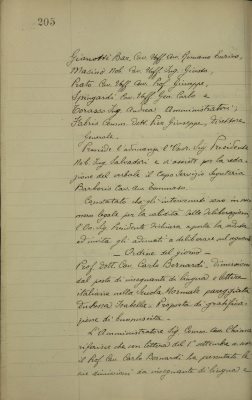 205
Gianotti Bar. Cav. Uff. Cav. Romano Enrico,
Masino Nob. Cav. Uff. Ing. Giusto,
Prato Cav. Uff. Cav. Prof. Giuseppe,
Springardi Cav. Uff. Gen. Carlo e
Ing. Andrea Amministratori;
Fabris Comm. Dott. Pier Giuseppe, Direttore
Generale.
Presiede l'adunanza l'Cav. Ing. Presidente
Nob. Ing. Salvadori e assiste per la reda-
zione del verbale il Capo Servizio Segreteria
Barberis Cav. Avv. Tommaso.
Constatato che gli intervenuti sono in nu-
mero legale per la validità delle deliberazioni,
l'Ing. Presidente dichiara aperta la seduta
ed invita gli adunati a deliberare sul seguente
- Ordine del giorno -
Prof. Dott. Cav. Carlo Bernardi, Dimissioni
dal posto di insegnante di lingua e lettere
italiane nella Scuola Normale pareggiata
Duchessa Isabella - Proposta di gratifica-
zione di buonuscita.
L'Amministratore Sig. Comm. Avv.
riferisce che con lettera del 1° settembre
il Prof. Cav. Carlo Bernardi ha presentato le
sue dimissioni da insegnante di lingua e